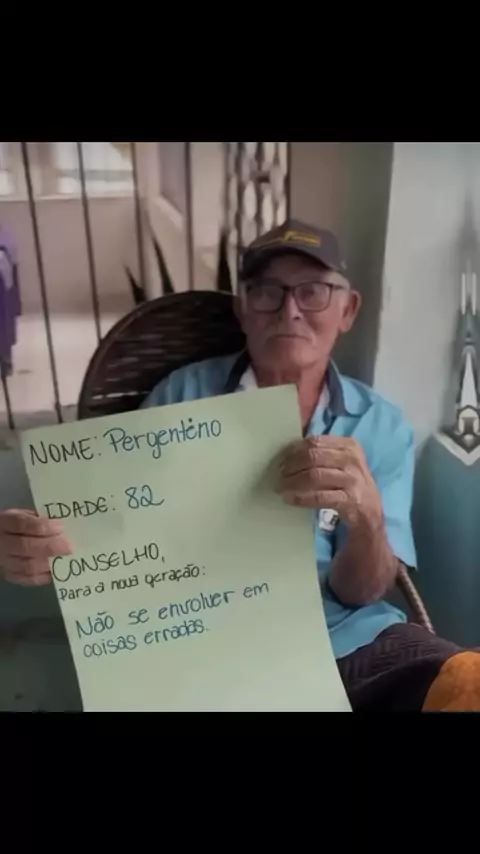 NOME: Pergentino
IDADE: 82
CONSELHO,
Para a nova geração:
Não se envolver em
coisas erradas.